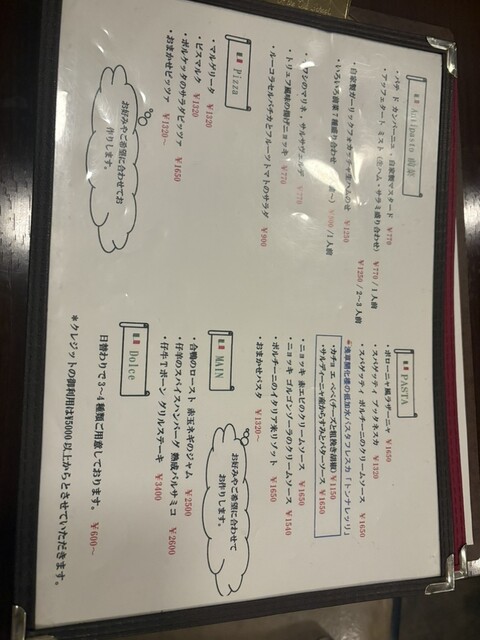 Antipasto 前菜
・パテ ド カンパーニュ 自家製マスタード ¥770
・アッフェタート ミスト (生ハム・サラミ盛り合わせ) ¥770 / 1人前
¥1250 / 2～3人前
・自家製ガーリックフォカッチャ生ハムのせ ¥1250
・いろいろ前菜7種盛り合わせ ～) ¥900 /1人前
イワシのマリネ、サルサヴェルデ ¥770
・トリュフ風味の揚げニョッキ ¥770
・ルーコラセルバチカとフルーツトマトのサラダ ¥900
Pizza
・マルゲリータ ¥1320
・ビスマルク ¥1320
・ポルケッタのサラダピッツァ ¥1650
・おまかせピッツァ ¥1320～
お好みやご希望に合わせてお
作りします。
PASTA
・ボローニャ風ラザーニャ ¥1650
・スパゲッティ プッタネスカ ¥1320
・スパゲッティ ポルチーニのクリームソース ¥1650
浅草開化楼の低加水パスタフレスカ「トンナレッリ」
・カチョ エ ペペ(チーズと粗挽き胡椒) ¥1150
・サルデーニャ産からすみとバターソース ¥1650
・ニョッキ 赤エビのクリームソース ¥1650
・ニョッキ ゴルゴンゾーラのクリームソース ¥1540
・ポルチーニのイタリア米リゾット ¥1650
・おまかせパスタ ¥1320～
MAIN
・合鴨のロースト 赤玉ネギのジャム ¥2500
・仔羊のスパイスハンバーグ 熟成バルサミコ ¥2600
・仔牛Tボーン グリルステーキ ¥3400
お好みやご希望に合わせて
お作りします。
Dolce
日替わりで3～4種類ご用意しております。 ¥600～
*クレジットの御利用は¥5000以上からとさせていただきます。